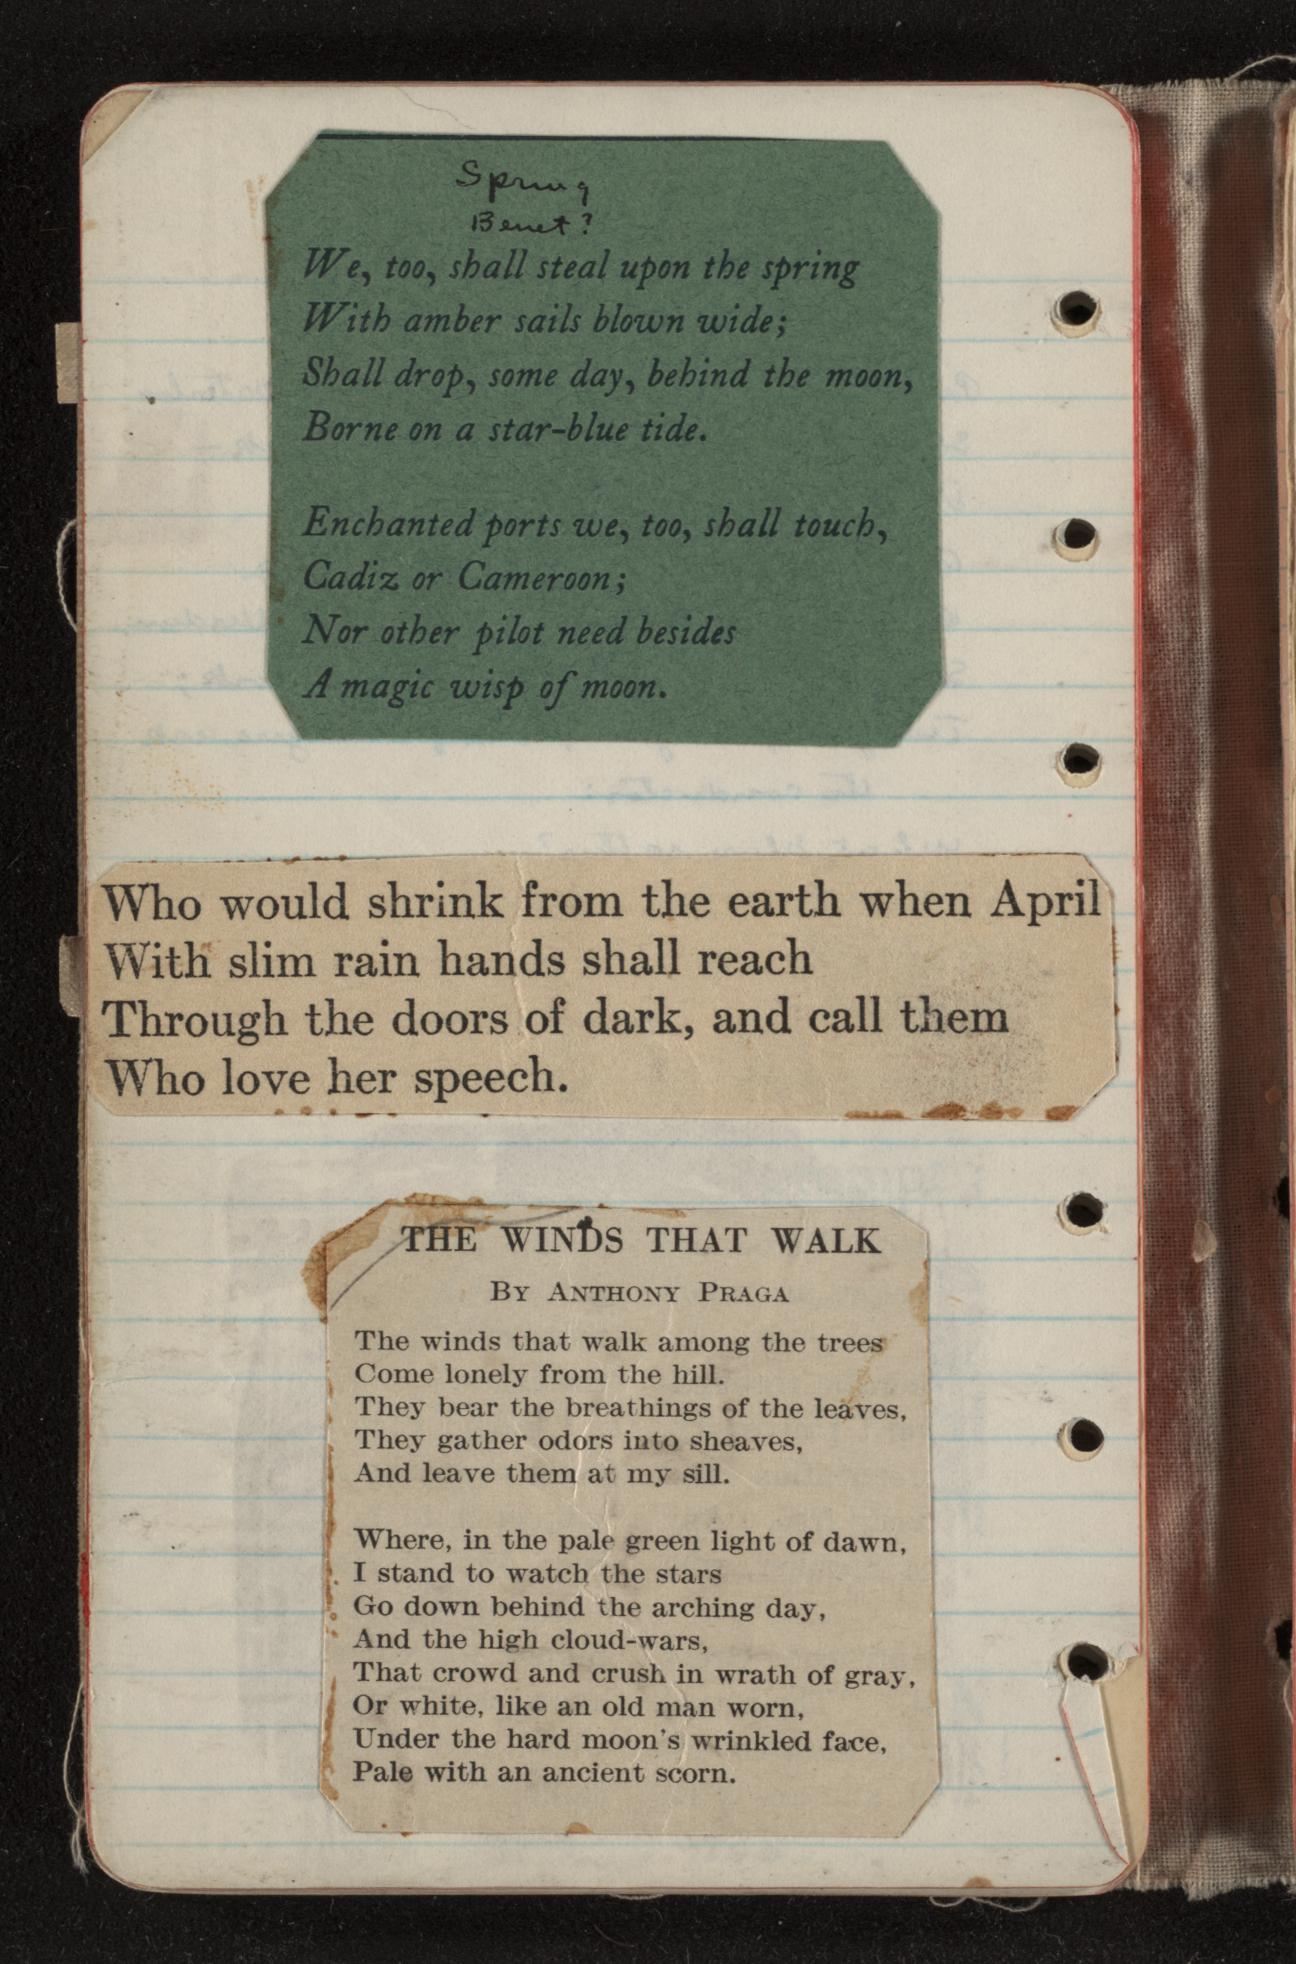 Spring
Benet?
We, too, shall steal upon the spring
With amber sails blown wide;
Shall drop, some day, behind the moon,
Borne on a star-blue tide.
Enchanted ports we, too, shall touch,
Cadiz or Cameroon;
Nor other pilot need besides
A magic wisp of moon.
Who would shrink from the earth when April
With slim rain hands shall reach
Through the doors of dark, and call them
Who love her speech.
THE WINDS THAT WALK
By Anthony Praga
The winds that walk among the trees
Come lonely from the hill.
They bear the breathings of the leaves,
They gather odors into sheaves,
And leave them at my sill.
Where, in the pale green light of dawn,
I stand to watch the stars
Go down behind the arching day,
And the high cloud-wars,
That crowd and crush in wrath of gray,
Or white, like an old man worn,
Under the hard moon's wrinkled face,
Pale with an ancient scorn.